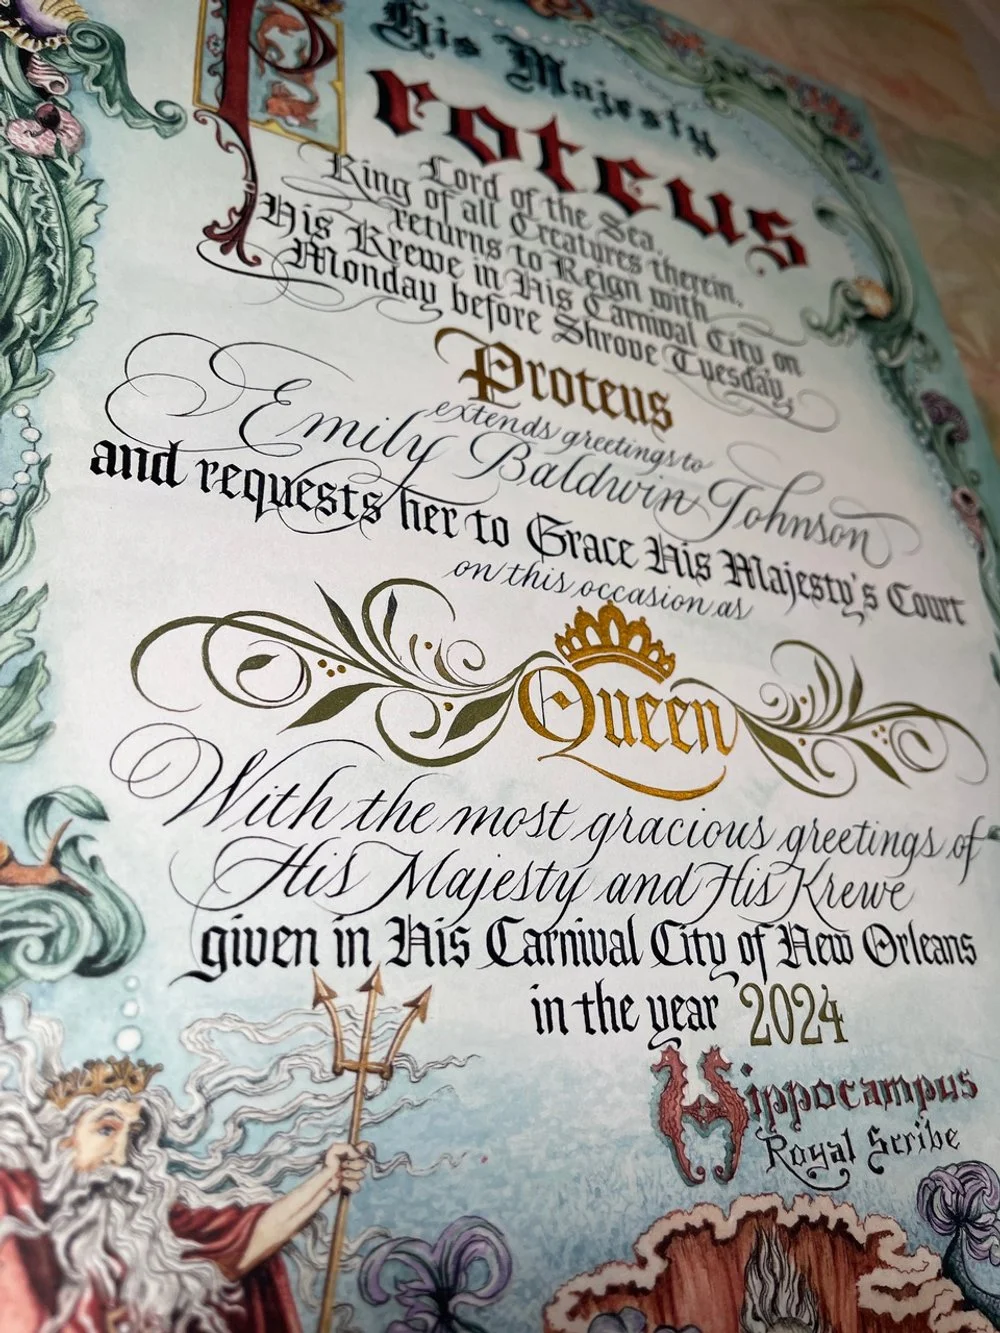 His Majesty
Proteus
Lord of the Sea,
King of all Creatures therein,
returns to Reign with
His Krewe in His Carnival City on
Monday before Shrove Tuesday,
Proteus
extends greetings to
Emily Baldwin Johnson
and requests her to Grace His Majesty's Court
on this occasion as
Queen
With the most gracious greetings of
His Majesty and His Krewe
given in His Carnival City of New Orleans
in the year 2024
Hippocampus
Royal Scribe